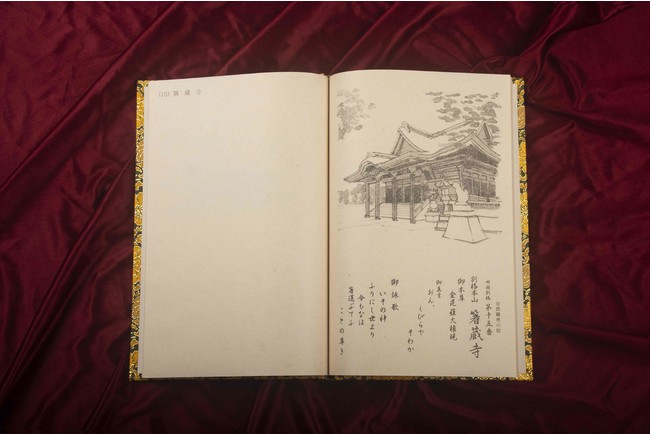 (15) 箸蔵寺
四国別格 第十五番
別格本山 箸蔵寺
御本尊
金毘羅大権現
御真言
おん、
くびらや
そわか
御詠歌
いその神
ふりにし世より
今もなほ
箸運ぶてふ
ことの尊き